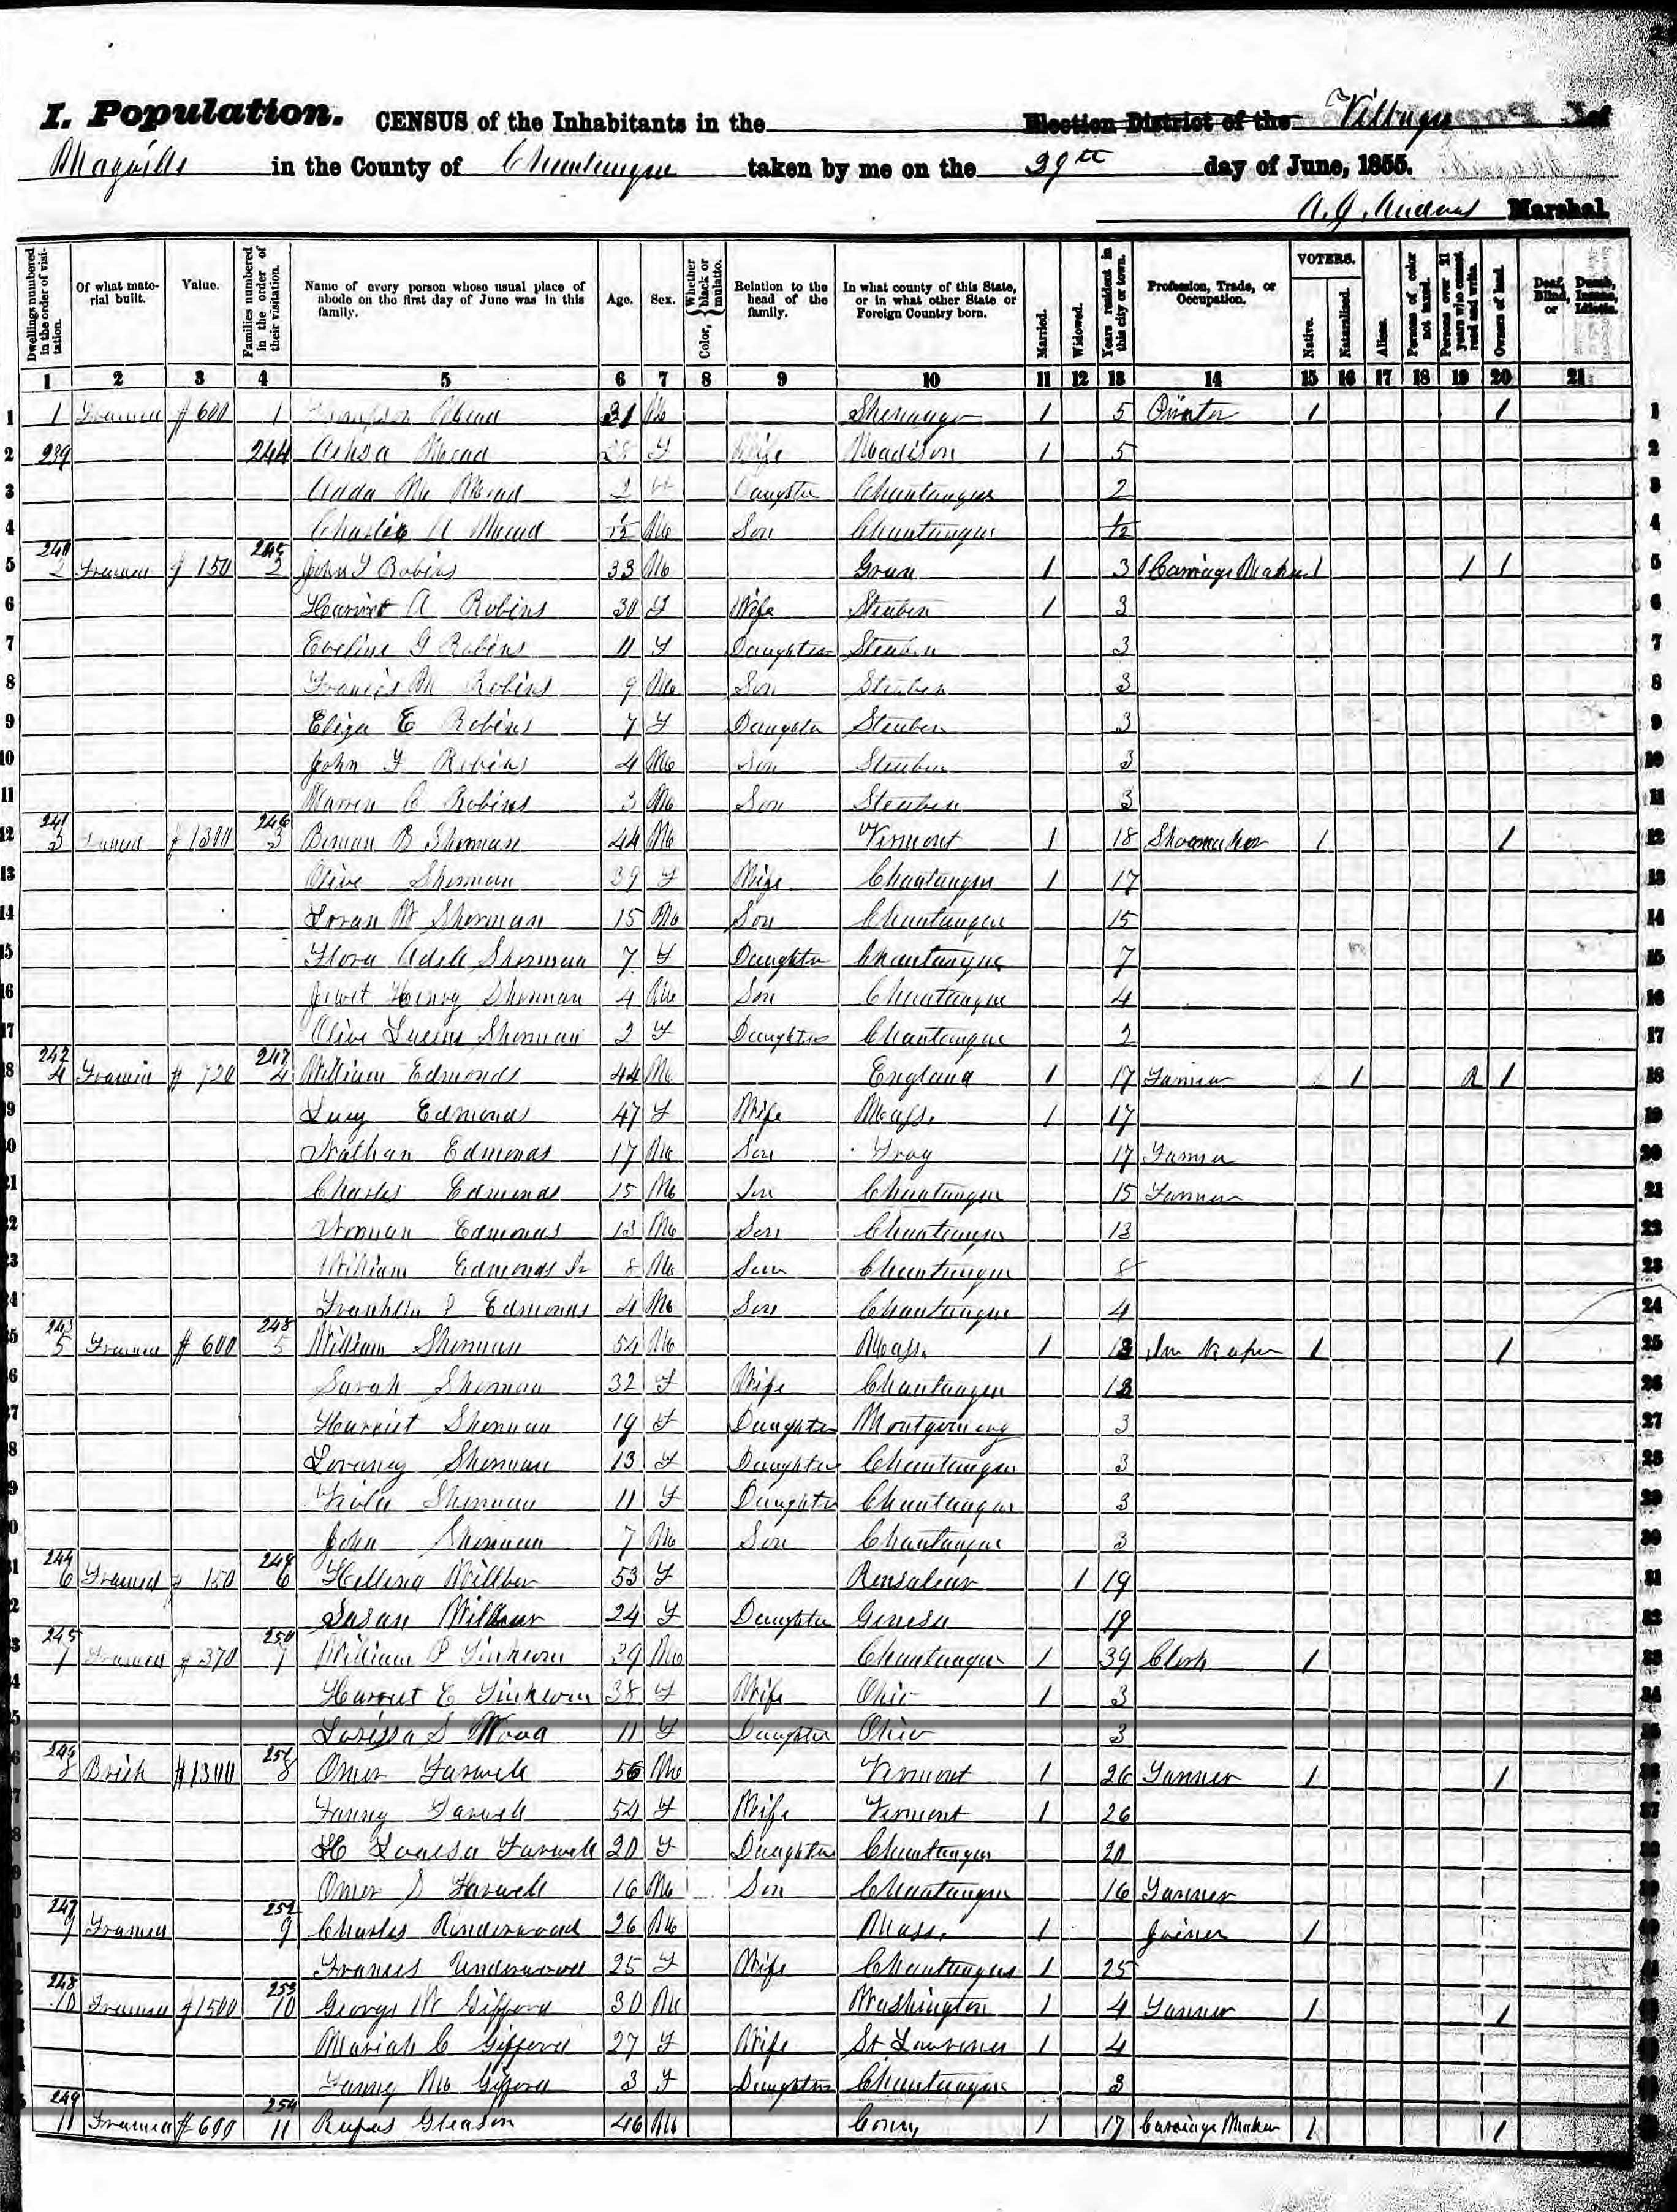 I. Population. CENSUS of the Inhabitants in the Election District of the Village of
Mayville in the County of Chautauque taken by me on the 29th day of June, 1855.
Marshal.
Dwellings numbered in the order of visitation. Of what material built. Value. Families numbered in the order of their visitation. Name of every person whose usual place of abode on the first day of June was in this family. Age. Sex. Color, Whether black or mulatto. Relation to the head of the family. In what county of this State, or in what other State or Foreign Country born. Married. Widowed. Years resident in this city or town. Profession, Trade, or Occupation. VOTERS. Native. Naturalized. Aliens. Persons of color not taxed. Persons over 21 years who cannot read and write. Owners of land. Deaf, Dumb, Blind, Insane, or Idiotic.
1 2 3 4 5 6 7 8 9 10 11 12 13 14 15 16 17 18 19 20 21
1 1 Framed $600 1 Mead 31 M 1 5 1 1 1
2 239 244 Mead 28 F Wife Madison 1 5 2
3 Adda M Mead 2 Daughter Chautauque 2 3
4 Charlie A Mead M Son Chautauque 4
240 245
5 2 Framed $150 2 John F Robins 33 M 1 3 Carriage Maker 1 1 1 5
6 Harriet A Robins 30 F Wife Steuben 1 3 6
7 Eveline G Robins 11 F Daughter Steuben 3 7
8 Francis M Robins 9 M Son Steuben 3 8
9 Eliza E Robins 7 F Daughter Steuben 3 9
10 John F Robins 4 M Son Steuben 3 10
11 Warren C Robins 3 M Son Steuben 3 11
241 246
12 3 Framed $1300 3 B Sherman 44 M Vermont 1 18 Shoemaker 1 1 12
13 Olive Sherman 39 F Wife Chautauque 1 17 13
14 Loran W Sherman 15 M Son Chautauque 15 14
15 Flora Adell Sherman 7 F Daughter Chautauque 7 15
16 Henry Sherman 4 M Son Chautauque 4 16
17 Olive Sherman 2 F Daughter Chautauque 2 17
242 247
18 4 Framed $720 4 William Edmonds 44 M England 1 17 1 R 1 18
19 Lucy Edmonds 47 F Wife Mass. 1 17 19
20 Nathan Edmonds 17 M Son Troy 17 20
21 Charles Edmonds 15 M Son Chautauque 15 21
22 Norman Edmonds 13 M Son Chautauque 13 22
23 William Edmonds Jr 8 M Son Chautauque 8 23
24 Franklin P Edmonds 4 M Son Chautauque 4 24
243 248
25 5 Framed $600 5 William Sherman 54 M Mass. 1 Inn Keeper 1 1 25
26 Sarah Sherman 32 F Wife Chautauque 26
27 Harriet Sherman 19 F Daughter Montgomery 3 27
28 Sherman 13 F Daughter Chautauque 3 28
29 Sherman 11 F Daughter Chautauque 3 29
30 John Sherman 7 M Son Chautauque 3 30
244
31 6 Framed $150 6 53 F 1 19 31
32 Susan 24 F Daughter 19 32
245 250
33 7 Framed $370 7 William P 39 M Chautauque 1 39 Clerk 1 33
34 Harriet E 38 F Wife Ohio 1 3 34
35 S Wood 11 F Daughter Ohio 3 35
246 251
36 8 Brick $1300 8 Omer Farwell M Vermont 1 26 1 1 36
37 Fanny Farwell 54 F Wife Vermont 1 26 37
38 H Louisa Farwell 20 F Daughter Chautauque 20 38
39 Omer S Farwell 16 M Son Chautauque 16 39
247 252
40 9 Framed 9 Charles Underwood 26 M Mass. 1 Joiner 1 40
41 Frances Underwood 25 F Wife Chautauque 1 25 41
248 253
42 10 Framed $1500 10 George W Gifford 30 M Washington 1 4 1 1
Mariah C Gifford 27 F Wife St Lawrence 1 4
Fanny M Gifford 3 F Daughter Chautauque 3
249 254
11 Framed $600 11 Rufus Gleason 46 M Conn, 1 17 Carriage Maker 1 1